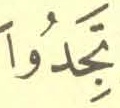 تَجِدُوا